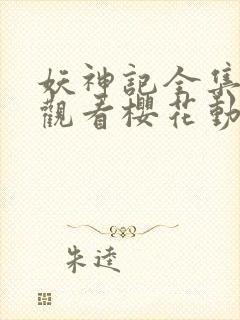 妖神記全集
觀看櫻花動
朱逵